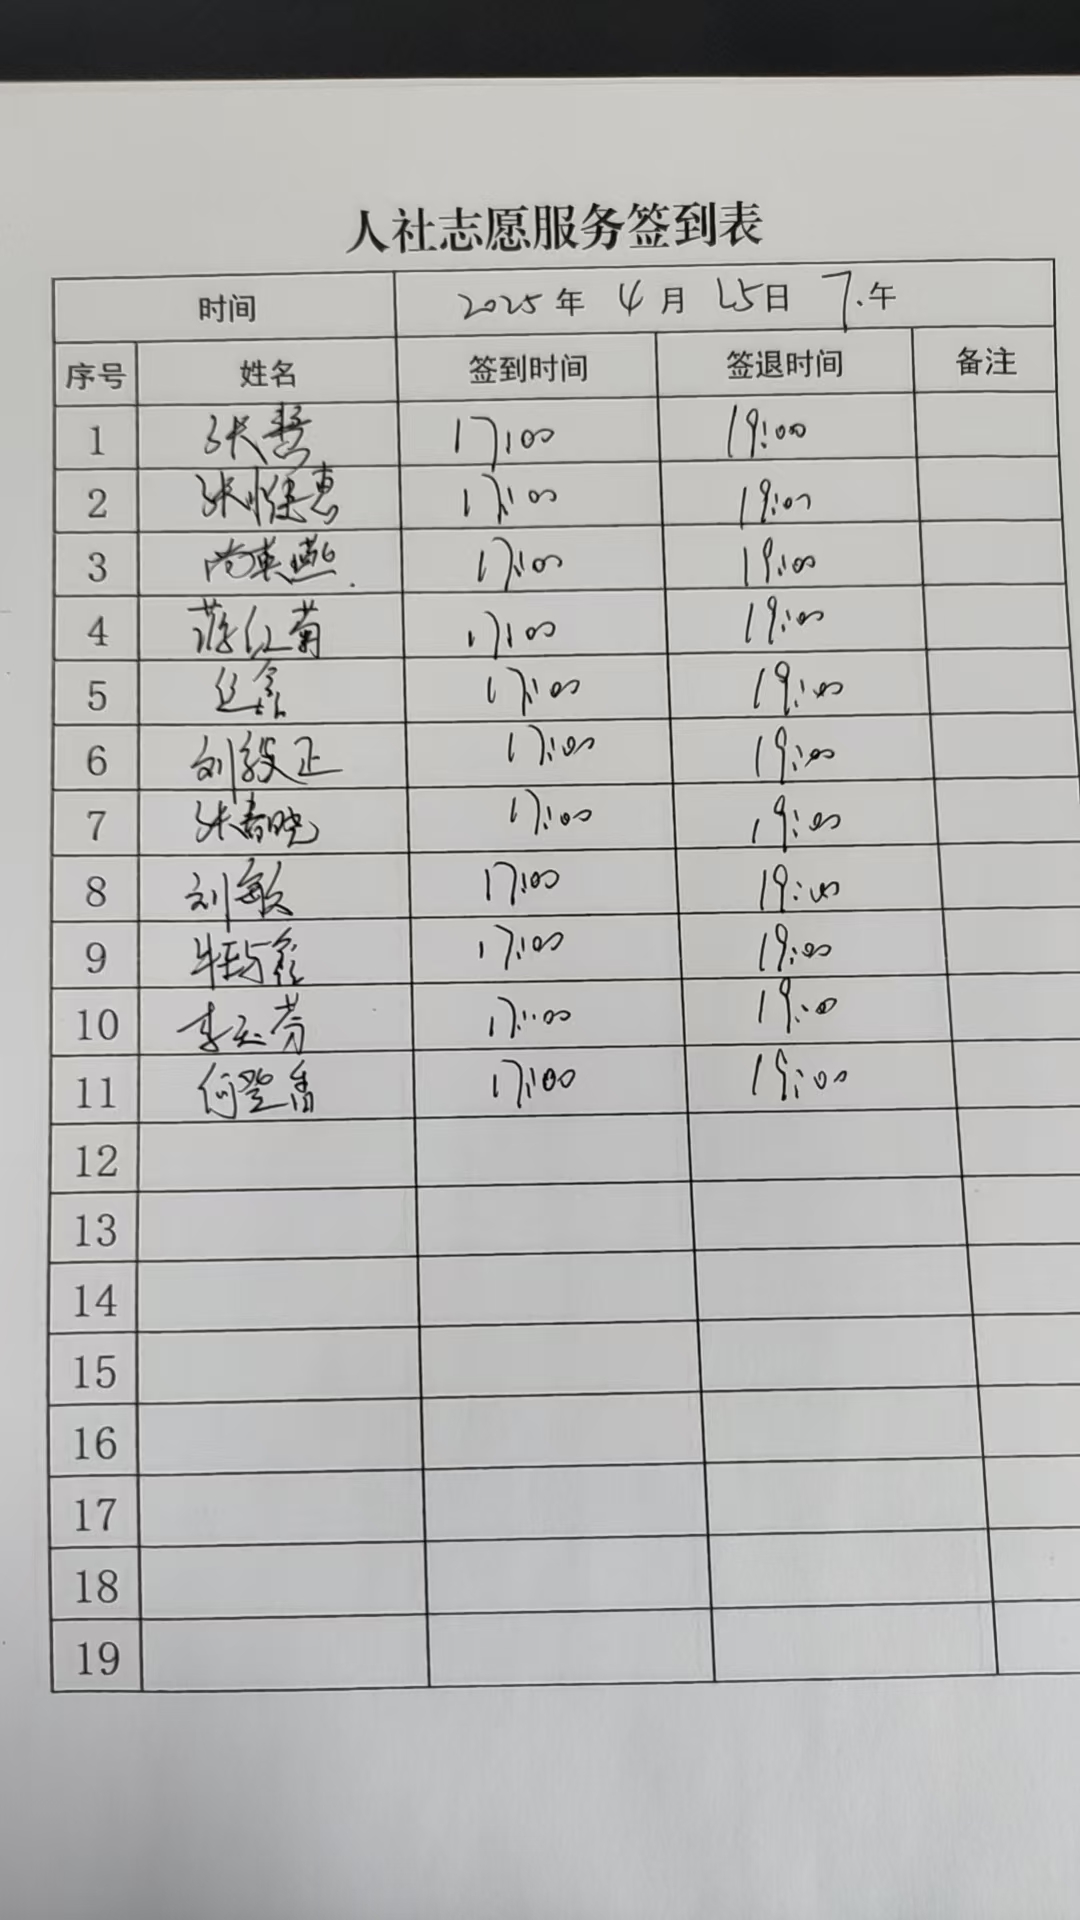 人社志愿服务签到表
时间 2025年 4月 25日 下午
序号 姓名 签到时间 签退时间 备注
1 张慧 17:00 19:00
2 张惠 17:00 19:00
3 尚英燕. 17:00 19:00
4 蒋红菊 17:00 19:00
5 17:00 19:00
6 刘毅正 17:00 19:00
7 张春晓 17:00 19:00
8 刘敏 17:00 19:00
9 17:00 19:00
10 李玉芬 17:00 19:00
11 何登香 17:00 19:00
12
13
14
15
16
17
18
19